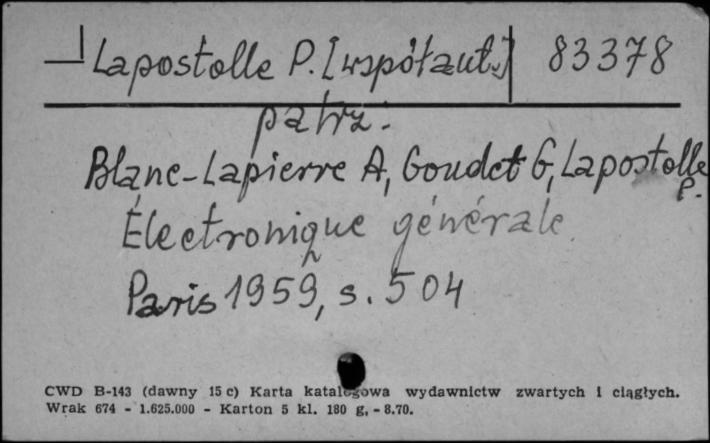 Lapostolle P. [współaut.] 83378
patrz:
Blanc-Lapierre A, Goudet G, Lapostolle P.
Électronique générale
Paris 1959, s. 504
CWD B-143 (dawny 15 c) Karta katalogowa wydawnictw zwartych i ciągłych.
Wrak 674 - 1.625.000 - Karton 5 kl. 180 g, - 8.70.